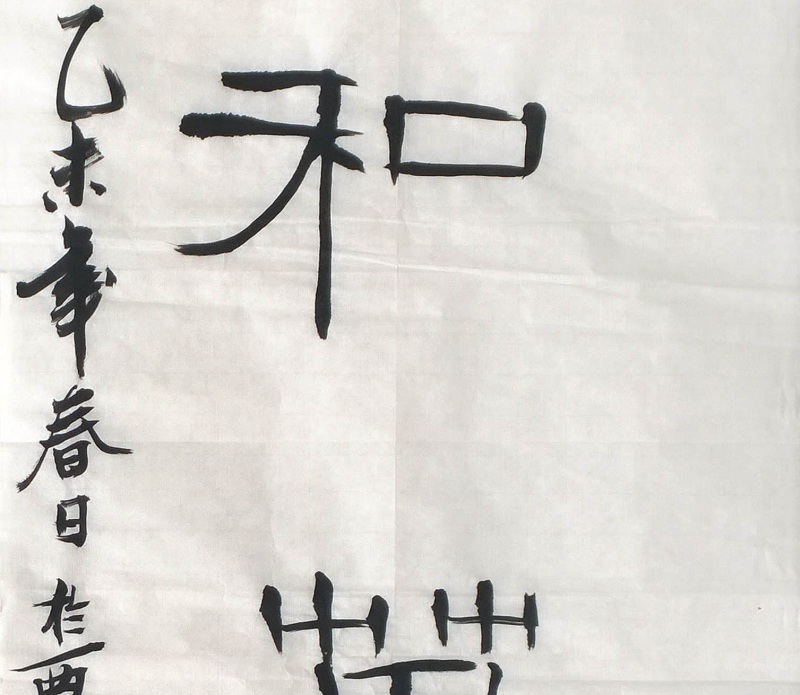 和
乙未年春日於西